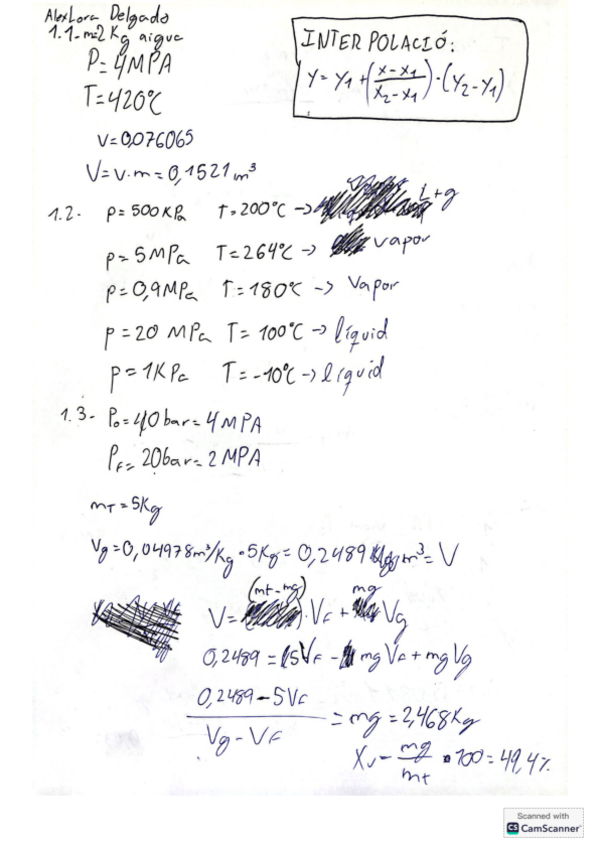 Alex Lora Delgado
1.1- m=2 Kg aigua
P=4MPA
T=420°C
INTERPOLACIÓ:
Y= Y1 + (x-x1 / x2-x1) · (Y2-Y1)
v=0,076065
V=v·m=0,1521 m³
1.2- p=500KPa T=200°C -> L+g
p=5MPa T=264°C -> vapor
p=0,9MPa T=180°C -> Vapor
p=20 MPa T=100°C -> líquid
p=1KPa T=-10°C -> líquid
1.3- Po=40bar=4MPA
PF=20bar=2MPA
mT=5Kg
Vg=0,04978m³/Kg·5Kg=0,2489 m³=V
V=(mt-mg)·VF+mg Vg
0,2489=5VF-mgVF+mgVg
0,2489-5VF / Vg-VF = mg=2,468Kg
Xv=mg/mt·100=49,4%
Scanned with
CS CamScanner